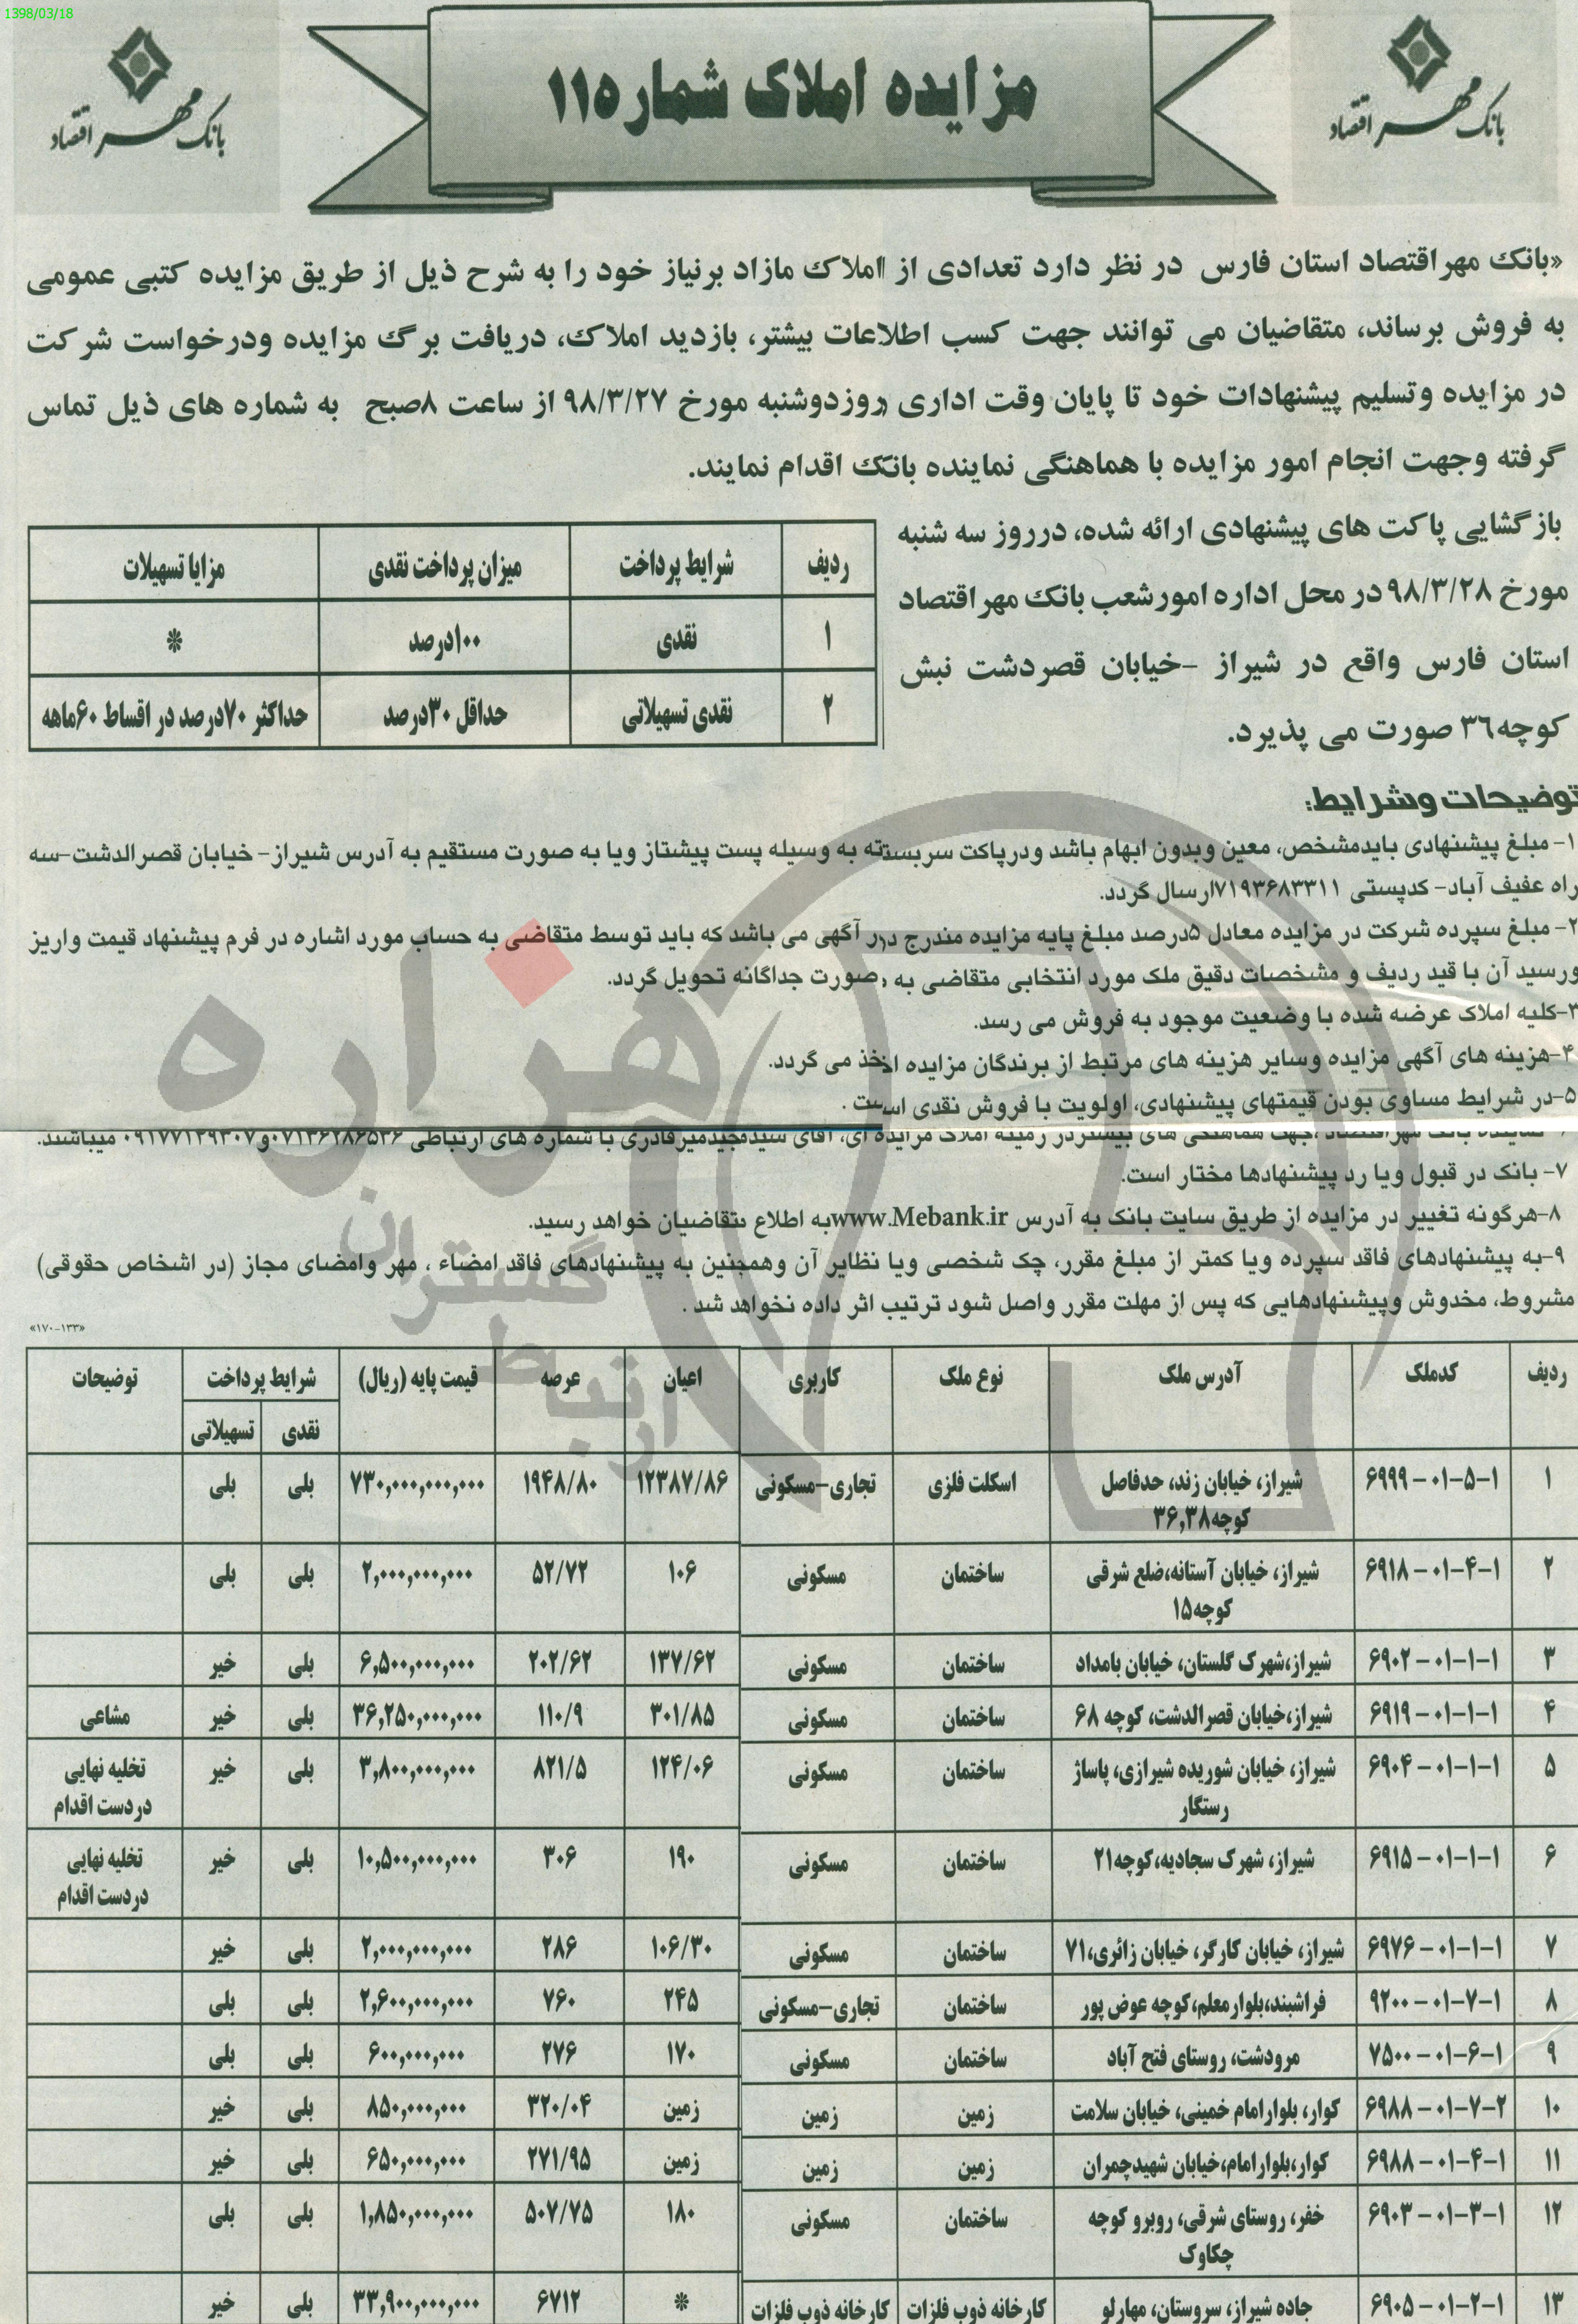 1398/03/18
بانک مهر اقتصاد
مزایده املاک شماره ۱۱
بانک مهر اقتصاد
«بانک مهر اقتصاد استان فارس در نظر دارد تعدادی از املاک مازاد برنیاز خود را به شرح ذیل از طریق مزایده کتبی عمومی
به فروش برساند، متقاضیان می توانند جهت کسب اطلاعات بیشتر، بازدید املاک، دریافت برگ مزایده ودرخواست شرکت
در مزایده وتسلیم پیشنهادات خود تا پایان وقت اداری روزدوشنبه مورخ ۹۸/۳/۲۷ از ساعت ۸صبح به شماره های ذیل تماس
گرفته وجهت انجام امور مزایده با هماهنگی نماینده بانک اقدام نمایند.
بازگشایی پاکت های پیشنهادی ارائه شده، درروز سه شنبه
مورخ ۹۸/۳/۲۸ در محل اداره امورشعب بانک مهر اقتصاد
استان فارس واقع در شیراز -خیابان قصردشت نبش
کوچه۳٦ صورت می پذیرد.
ردیف شرایط پرداخت میزان پرداخت نقدی مزایا تسهیلات
۱ نقدی ۱۰۰درصد *
۲ نقدی تسهیلاتی حداقل ۳۰درصد حداکثر ۷۰درصد در اقساط ۶۰ماهه
توضیحات وشرایط:
۱- مبلغ پیشنهادی بایدمشخص، معین وبدون ابهام باشد ودرپاکت سربسته به وسیله پست پیشتاز ویا به صورت مستقیم به آدرس شیراز- خیابان قصرالدشت-سه
راه عفیف آباد- کدپستی ۷۱۹۳۶۸۳۳۱۱ارسال گردد.
۲- مبلغ سپرده شرکت در مزایده معادل ۵درصد مبلغ پایه مزایده مندرج در آگهی می باشد که باید توسط متقاضی به حساب مورد اشاره در فرم پیشنهاد قیمت واریز
ورسید آن با قید ردیف و مشخصات دقیق ملک مورد انتخابی متقاضی به صورت جداگانه تحویل گردد.
۳-کلیه املاک عرضه شده با وضعیت موجود به فروش می رسد.
۴-هزینه های آگهی مزایده وسایر هزینه های مرتبط از برندگان مزایده اخذ می گردد.
۵-در شرایط مساوی بودن قیمتهای پیشنهادی، اولویت با فروش نقدی است .
نماینده بانک مهراقتصاد جهت هماهنگی های بیشتردر زمینه املاک مزایده ای، آقای سیدمجیدمیرقادری با شماره های ارتباطی ۰۷۱۳۶۲۸۶۵۳۶و۰۹۱۷۷۱۲۹۳۰۷ میباشند.
۷- بانک در قبول ویا رد پیشنهادها مختار است.
۸-هرگونه تغییر در مزایده از طریق سایت بانک به آدرس www.Mebank.irبه اطلاع متقاضیان خواهد رسید.
۹-به پیشنهادهای فاقد سپرده ویا کمتر از مبلغ مقرر، چک شخصی ویا نظایر آن وهمچنین به پیشنهادهای فاقد امضاء ، مهر وامضای مجاز (در اشخاص حقوقی)
مشروط، مخدوش وپیشنهادهایی که پس از مهلت مقرر واصل شود ترتیب اثر داده نخواهد شد .
«۱۷۰-۱۳۳»
ردیف کدملک آدرس ملک نوع ملک کاربری اعیان عرصه قیمت پایه (ریال) شرایط پرداخت توضیحات
نقدی تسهیلاتی
۱ ۶۹۹۹-۰۱-۵-۱ شیراز، خیابان زند، حدفاصل اسکلت فلزی تجاری-مسکونی ۱۲۳۸۷/۸۶ ۱۹۴۸/۸۰ ۷۳۰,۰۰۰,۰۰۰,۰۰۰ بلی بلی
کوچه۳۶,۳۸
۲ ۶۹۱۸-۰۱-۴-۱ شیراز، خیابان آستانه،ضلع شرقی ساختمان مسکونی ۱۰۶ ۵۲/۷۲ ۲,۰۰۰,۰۰۰,۰۰۰ بلی بلی
کوچه۱۵
۳ ۶۹۰۲-۰۱-۱-۱ شیراز،شهرک گلستان، خیابان بامداد ساختمان مسکونی ۱۳۷/۶۲ ۲۰۲/۶۲ ۶,۵۰۰,۰۰۰,۰۰۰ بلی خیر
۴ ۶۹۱۹-۰۱-۱-۱ شیراز،خیابان قصرالدشت، کوچه ۶۸ ساختمان مسکونی ۳۰۱/۸۵ ۱۱۰/۹ ۳۶,۲۵۰,۰۰۰,۰۰۰ بلی خیر مشاعی
۵ ۶۹۰۴-۰۱-۱-۱ شیراز، خیابان شوریده شیرازی، پاساژ ساختمان مسکونی ۱۲۴/۰۶ ۸۲۱/۵ ۳,۸۰۰,۰۰۰,۰۰۰ بلی خیر تخلیه نهایی
رستگار دردست اقدام
۶ ۶۹۱۵-۰۱-۱-۱ شیراز، شهرک سجادیه،کوچه۲۱ ساختمان مسکونی ۱۹۰ ۳۰۶ ۱۰,۵۰۰,۰۰۰,۰۰۰ بلی خیر تخلیه نهایی
دردست اقدام
۷ ۶۹۷۶-۰۱-۱-۱ شیراز، خیابان کارگر، خیابان زائری،۷۱ ساختمان مسکونی ۱۰۶/۳۰ ۲۸۶ ۲,۰۰۰,۰۰۰,۰۰۰ بلی خیر
۸ ۹۲۰۰-۰۱-۷-۱ فراشبند،بلوارمعلم،کوچه عوض پور ساختمان تجاری-مسکونی ۲۴۵ ۷۶۰ ۲,۶۰۰,۰۰۰,۰۰۰ بلی بلی
۹ ۷۵۰۰-۰۱-۶-۱ مرودشت، روستای فتح آباد ساختمان مسکونی ۱۷۰ ۲۷۶ ۶۰۰,۰۰۰,۰۰۰ بلی بلی
۱۰ ۶۹۸۸-۰۱-۷-۲ کوار، بلوارامام خمینی، خیابان سلامت زمین زمین زمین ۳۲۰/۰۴ ۸۵۰,۰۰۰,۰۰۰ بلی خیر
۱۱ ۶۹۸۸-۰۱-۴-۱ کوار،بلوارامام،خیابان شهیدچمران زمین زمین زمین ۲۷۱/۹۵ ۶۵۰,۰۰۰,۰۰۰ بلی خیر
۱۲ ۶۹۰۳-۰۱-۳-۱ خفر، روستای شرقی، روبرو کوچه ساختمان مسکونی ۱۸۰ ۵۰۷/۷۵ ۱,۸۵۰,۰۰۰,۰۰۰ بلی بلی
چکاوک
۱۳ ۶۹۰۵-۰۱-۲-۱ جاده شیراز، سروستان، مهارلو کارخانه ذوب فلزات کارخانه ذوب فلزات * ۶۷۱۲ ۳۳,۹۰۰,۰۰۰,۰۰۰ بلی خیر
هزاره
گستران
ارتباط